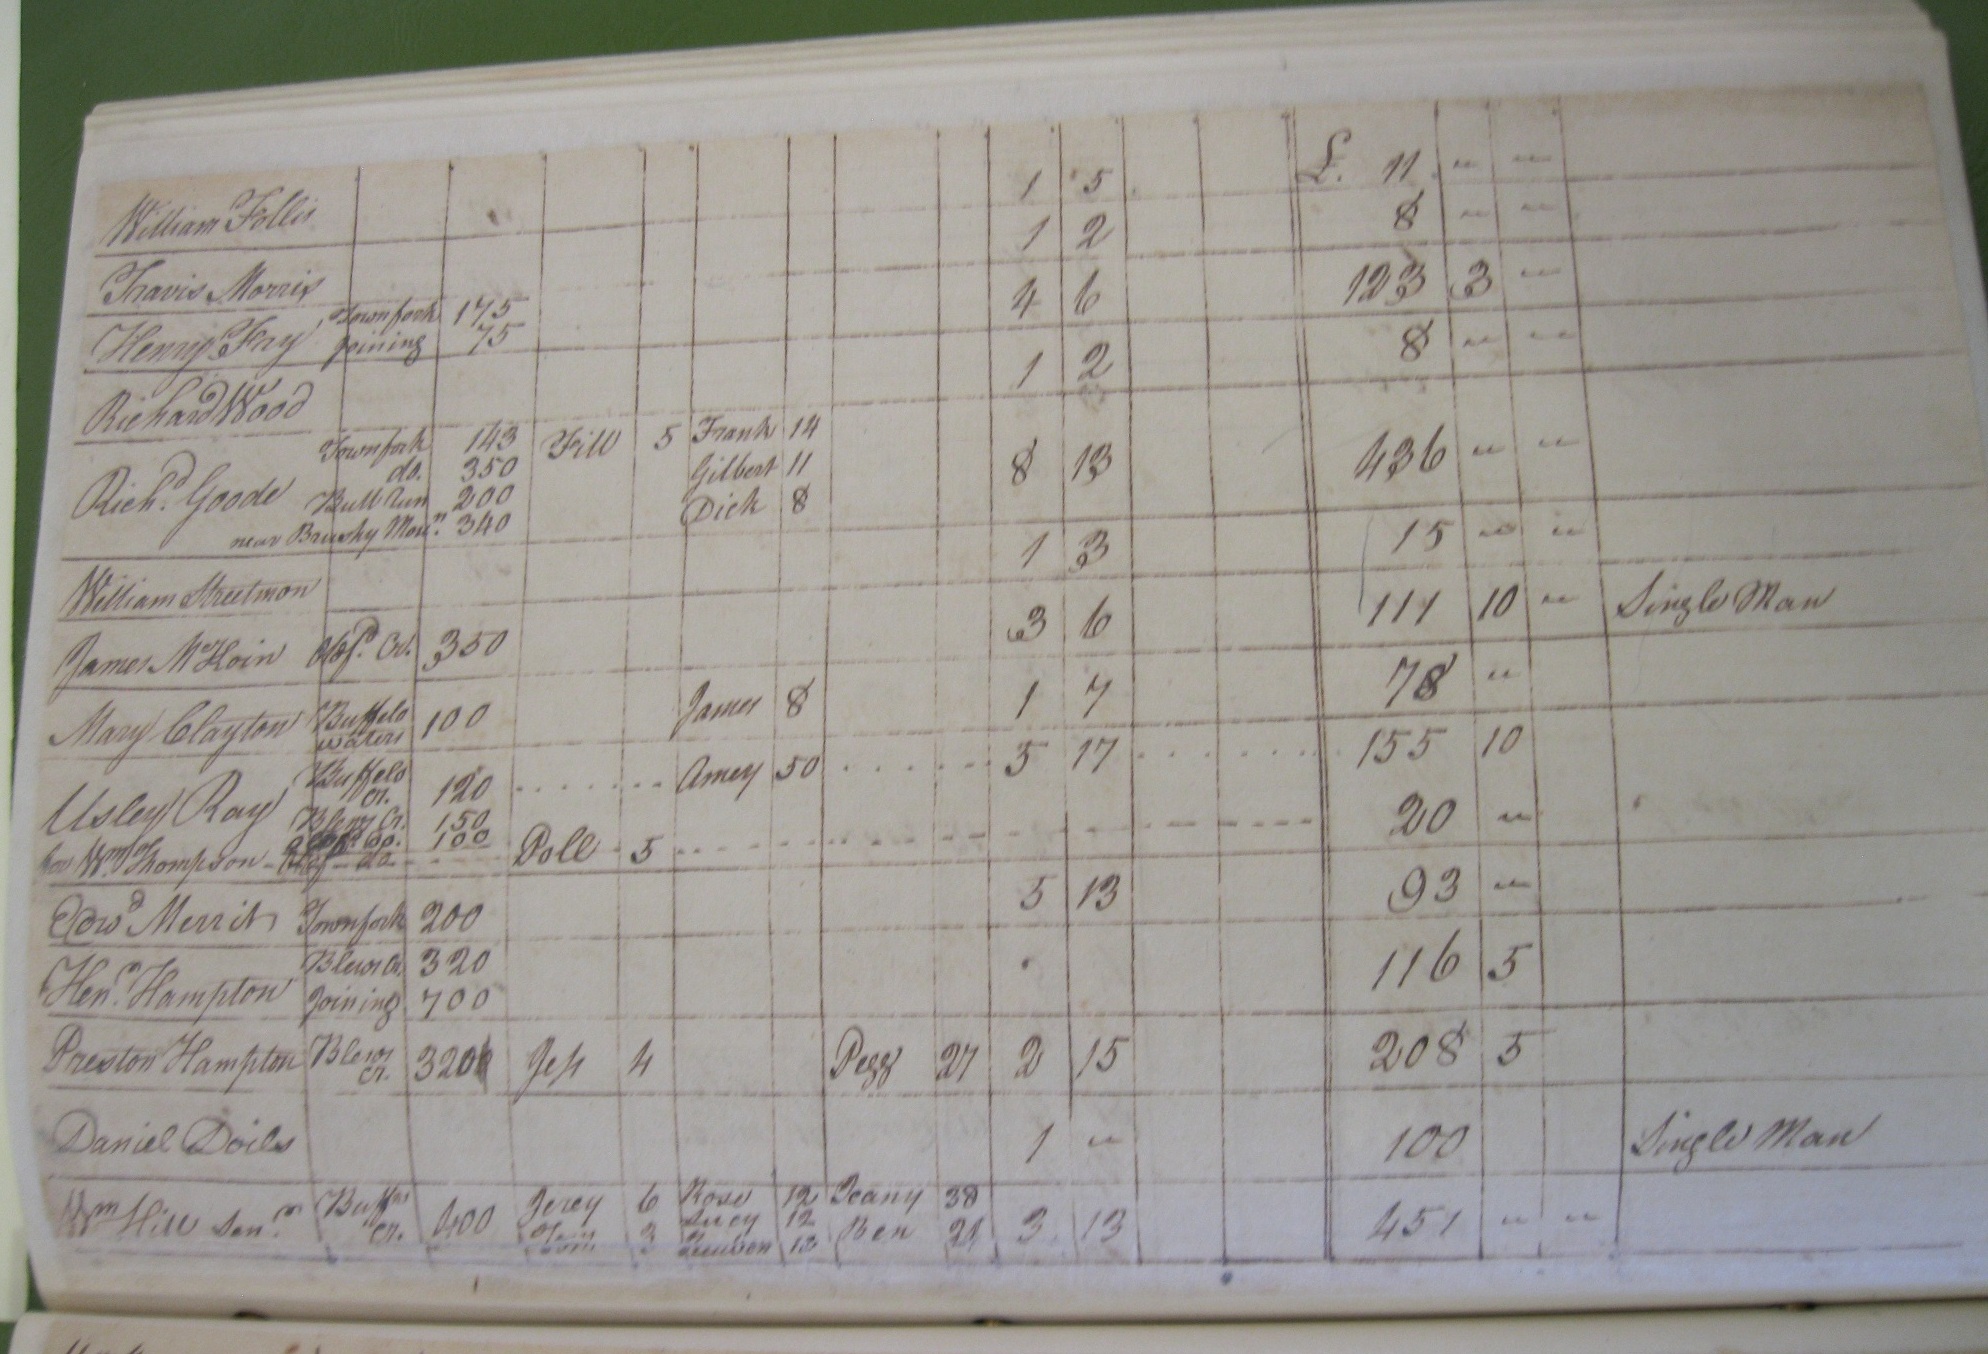 William Follis 1 5 £. 11 " "
Travis Morris 1 2 8 " "
Henry Fry Townfork 175 4 6 123 3 "
joining 75
Richard Wood 1 2 8 " "
Townfork 143 Fill 5 Frank 14
do. 350 Gilbert 11
Richd. Goode Bull Run 200 Dick 8 8 13 436 " "
near Brushy Moun. 340
William Streetmon 1 3 15 " "
James McKoin Cr. 350 3 6 111 10 " Single Man
Mary Clayton Buffelo waters 100 James 8 1 7 78 "
Usley Ray Buffelo Cr. 120 Amey 50 5 17 155 10
Blews Cr. 150
100
for Wm. Thompson do Doll 5 20 "
Edwd Merrit Townfork 200 5 13 93 "
Henr. Hampton Blews Cr. 320 116 5
joining 700
Preston Hampton Blews Cr. 320 Jess 4 Pegg 27 2 15 208 5
Daniel Doils 1 " 100 Single Man
Wm Hill Senr. Buffw Cr. 400 Jerey 6 Rose 12 Jeany 38 3 13 451 " "
3 Lucy 12 Ben 21
Reuben 12